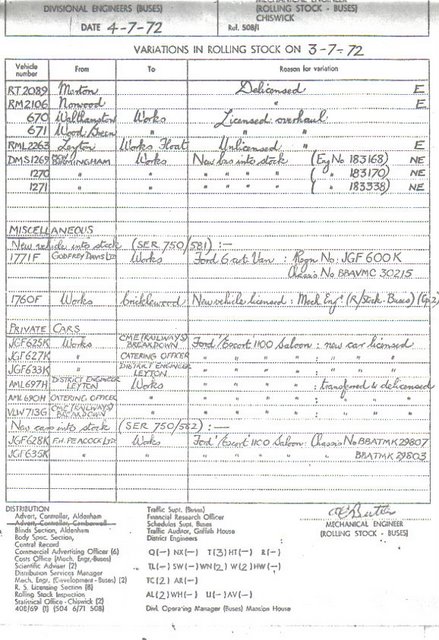 DIVISIONAL ENGINEERS (BUSES)
DATE 4-7-72
MECHANICAL ENGINEER
(ROLLING STOCK - BUSES)
CHISWICK
Ref. 508/1
VARIATIONS IN ROLLING STOCK ON 3-7-72
Vehicle number From To Reason for variation
RT2089 Merton Delicensed E
RM2106 Norwood " E
670 Walthamstow Works Licensed overhaul
671 Wood Green " " "
RML2263 Leyton Works Float Unlicensed " E
DMS1269 BIRMINGHAM Works New bus into stock (Eng No 183168) NE
1270 " " " " " " ( " 183170) NE
1271 " " " " " " ( " 183338) NE
MISCELLANEOUS
New vehicle into stock (SER 750/581) :—
1771F GODFREY DAVIS LTD Works Ford 6 cwt. Van : Regn No: JGF 600K
Chassis No BBAVMC 30215
1760F Works Cricklewood New vehicle licensed : Mech Engr (R/Stock. Buses) (Gp 2)
PRIVATE CARS
JGF625K Works CME (RAILWAYS) BREAKDOWN Ford 'Escort 1100 Saloon : new car licensed
JGF627K " CATERING OFFICER " " " " " " "
JGF633K " DISTRICT ENGINEER LEYTON " " " " " " "
AML697H DISTRICT ENGINEER LEYTON Works " " " " : transferred & delicensed
AMK690H CATERING OFFICER " " " " " " " "
VLW713G CME (RAILWAYS) BREAKDOWN " " " " " " " "
New cars into stock (SER 750/582) :—
JGF628K F.H. PEACOCK LTD Works Ford 'Escort 1100 Saloon : Chassis No BBATMK 29807
JGF635K " " " " " " BBATMK 29803
DISTRIBUTION
Advert. Controller, Aldenham
Advert. Controller, Camberwell
Blinds Section, Aldenham
Body Spec. Section,
Central Record
Commercial Advertising Officer (6)
Costs Office (Mech. Engr.-Buses)
Scientific Adviser (2)
Distribution Services Manager
Mech. Engr. (Development - Buses) (2)
R. S. Licensing Section (8)
Rolling Stock Inspection
Statistical Office - Chiswick (2)
40E/69 (1) (504 6/71 508)
Traffic Supt. (Buses)
Financial Research Officer
Schedules Supt. Buses
Traffic Audit, Griffith House
District Engineers
Q(—) NX(—) T(3) HT(—) R(—)
TL(—) SW(—) WN(2) W(2) HW(—)
TC(2) AR(—)
AL(2) WH(—) U(—) AV(—)
Divl. Operating Manager (Buses) Mansion House
MECHANICAL ENGINEER
(ROLLING STOCK - BUSES)